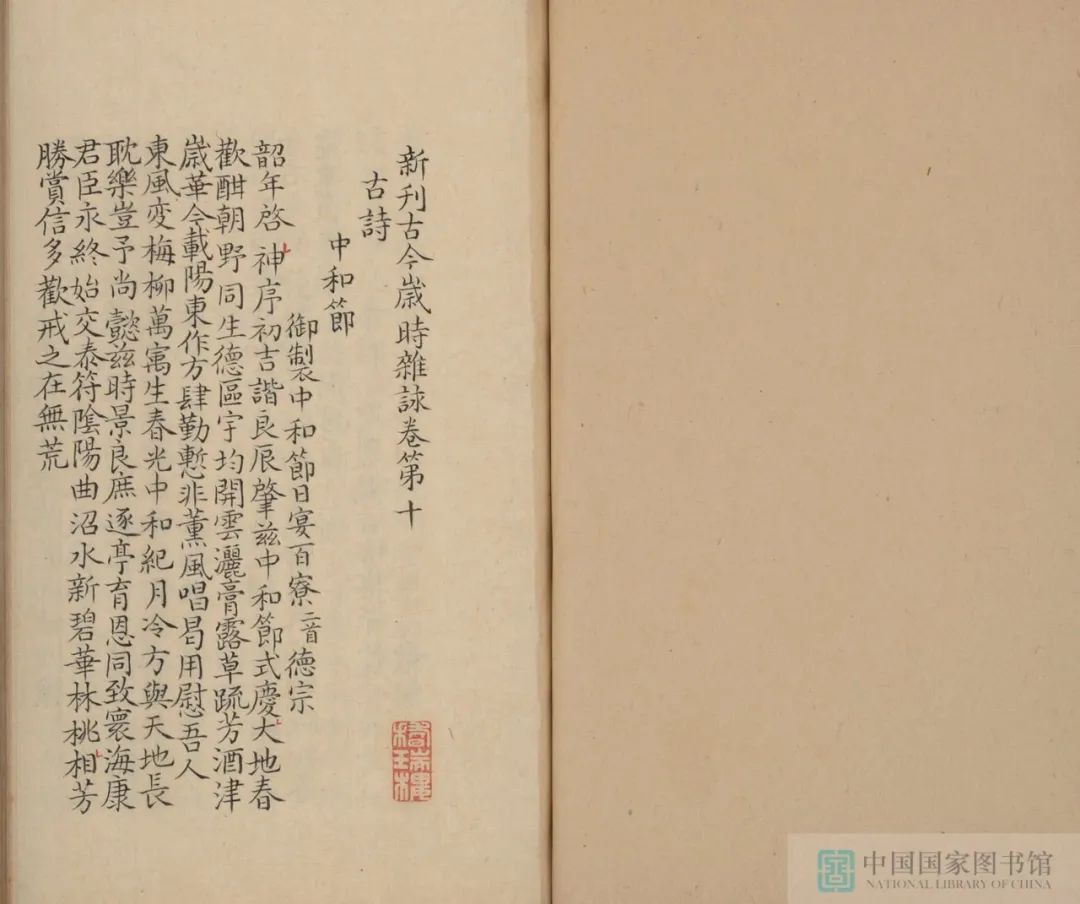 新刊古今歲時雜詠卷第十
古詩
中和節
御製中和節日宴百寮二首德宗
韶年啓神序初吉諧良辰肇茲中和節式慶大地春
歡酣朝野同生德區宇均開雲灑膏露草疏芳酒津
歲華今載陽東作方肆勤慙非薰風唱曷用慰吾人
東風変梅柳萬寓生春光中和紀月冷方與天地長
耽樂豈予尚懿茲時景良庶逐亭育恩同致寰海康
君臣永終始交泰符陰陽曲沼水新碧華林桃相芳
勝賞信多歡戒之在無荒
中国国家图书馆
NATIONAL LIBRARY OF CHINA